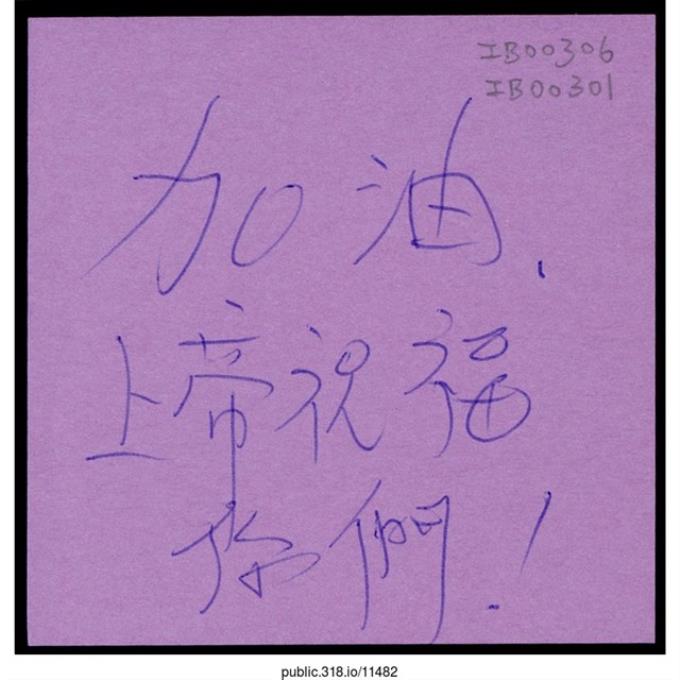 IB00306
IB00301
加油.
上帝祝福
你們!
public.318.io/11482